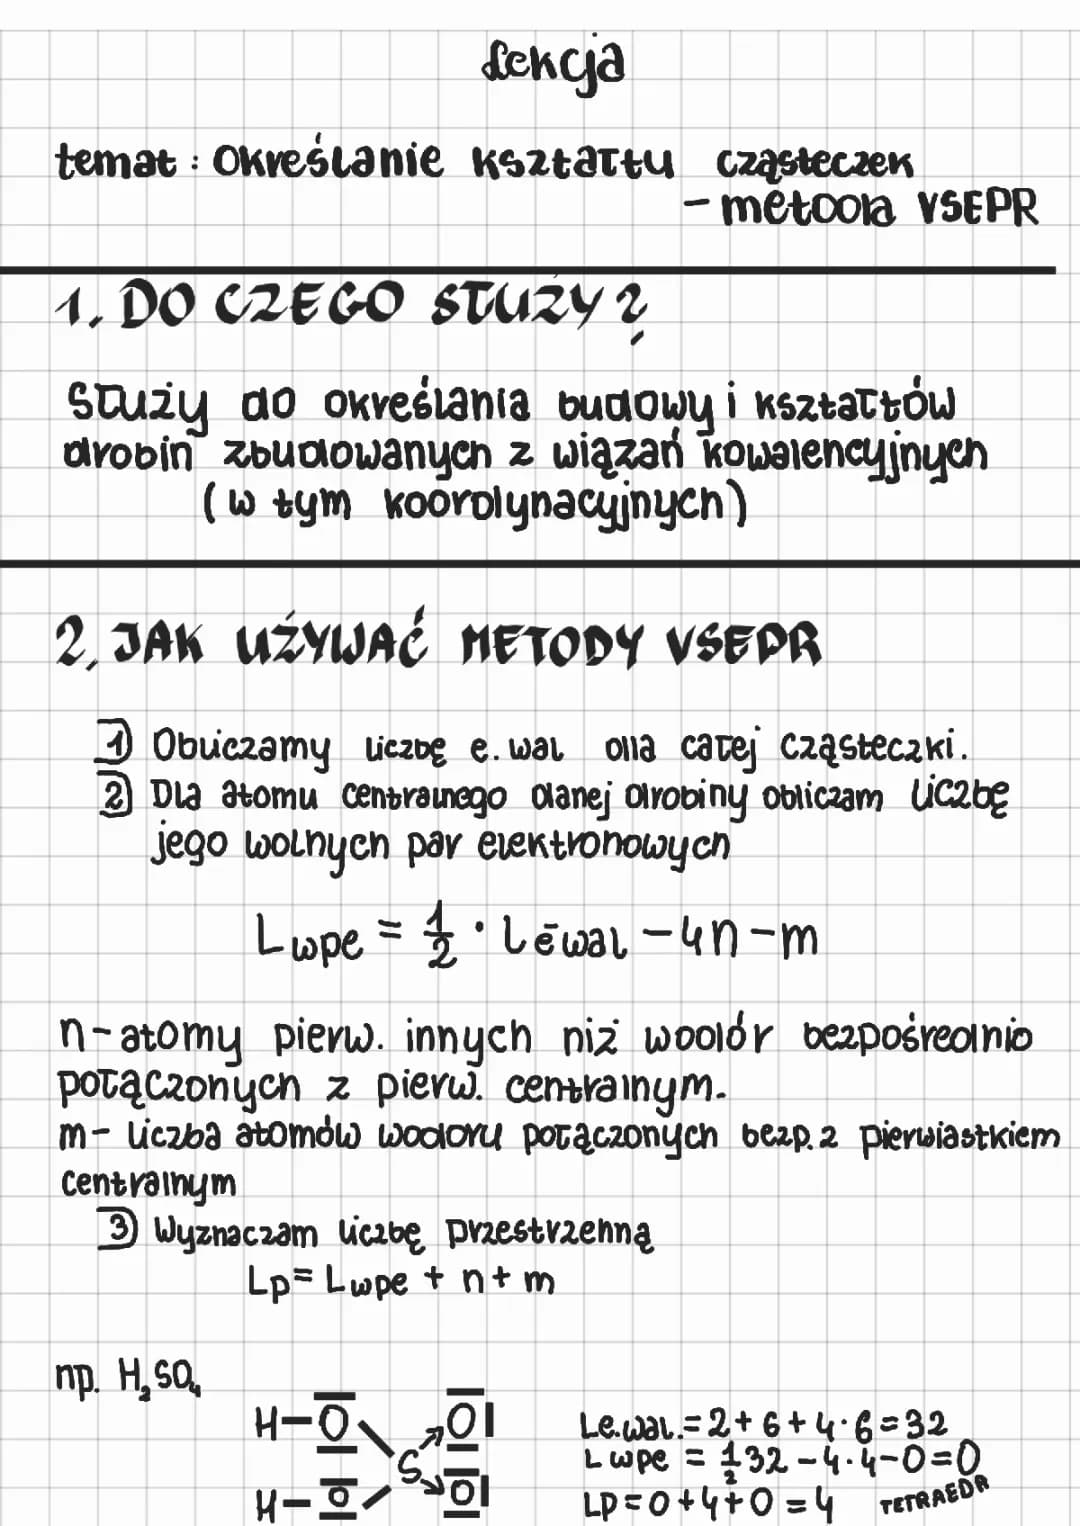 Lekcja
temat: Określanie kształtu cząsteczek
- metoda VSEPR
1. DO CZEGO SŁUŻY?
Służy do określania budowy i kształtów
drobin zbudowanych z wiązań kowalencyjnych
(w tym koordynacyjnych)
2. JAK UŻYWAĆ METODY VSEPR
1) Obliczamy liczbę e. wal dla całej cząsteczki.
2) Dla atomu centralnego danej drobiny obliczam liczbę
jego wolnych par elektronowych
Lwpe = 1/2 · Lēwal - 4n - m
n - atomy pierw. innych niż wodór bezpośrednio
połączonych z pierw. centralnym.
m - liczba atomów wodoru połączonych bezp. z pierwiastkiem
centralnym
3) Wyznaczam liczbę przestrzenną
Lp = Lwpe + n + m
np. H₂SO₄
H-O O
S
H-O O
Le.wal. = 2 + 6 + 4·6 = 32
Lwpe = 1/2 32 - 4·4 - 0 = 0
LP = 0 + 4 + 0 = 4 TETRAEDR